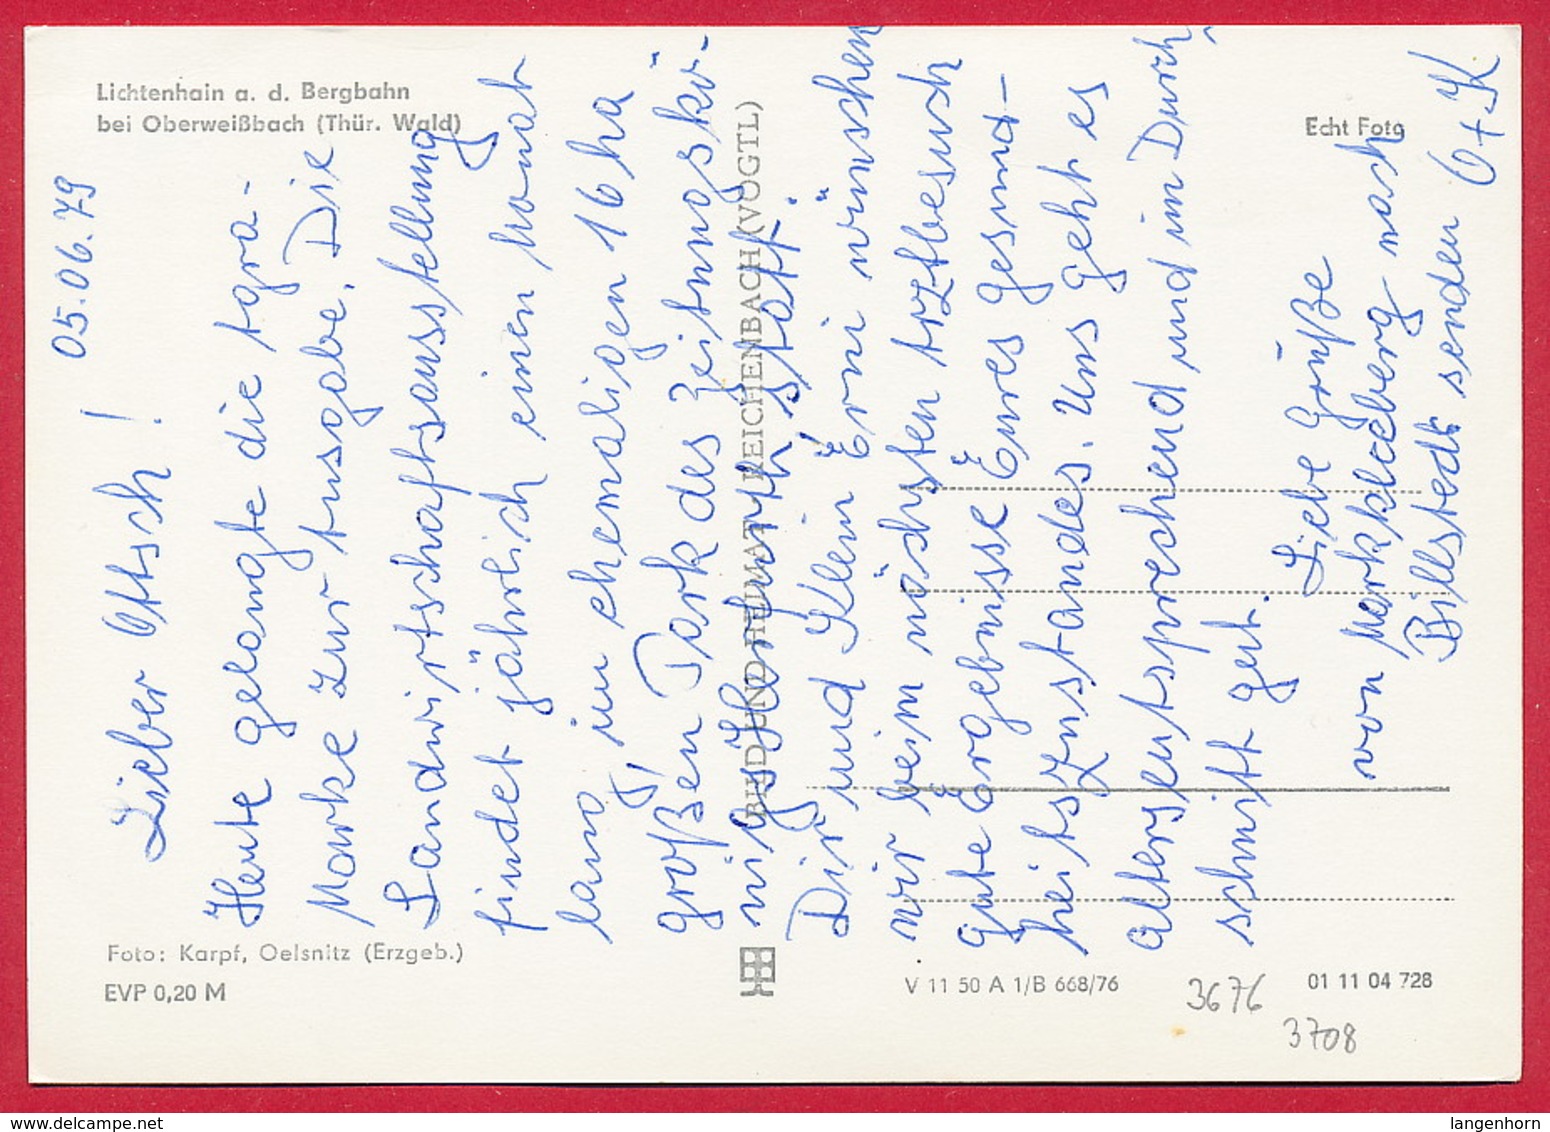 Lichtenhain a. d. Bergbahn
bei Oberweißbach (Thür. Wald)
Echt Foto
05.06.79
Lieber Ottsch!
Heute gelangte die Agra-
Marke zur Ausgabe. Die
Landwirtschaftsausstellung
findet jährlich einen Monat
lang im ehemaligen 16 ha
großen Park des Zeitungskö-
nigs Herfurth statt.
Dir und Klein Erni wünschen
wir beim nächsten Arztbesuch
gute Ergebnisse Eures Gesund-
heitszustandes. Uns geht es
altersentsprechend und im Durch-
schnitt gut.
Liebe Grüße
von Markkleeberg nach
Billstedt senden O + K
BILD UND HEIMAT REICHENBACH (VOGTL)
Foto: Karpf, Oelsnitz (Erzgeb.)
EVP 0,20 M
V 11 50 A 1/B 668/76
01 11 04 728
3676
3708
langenhorn